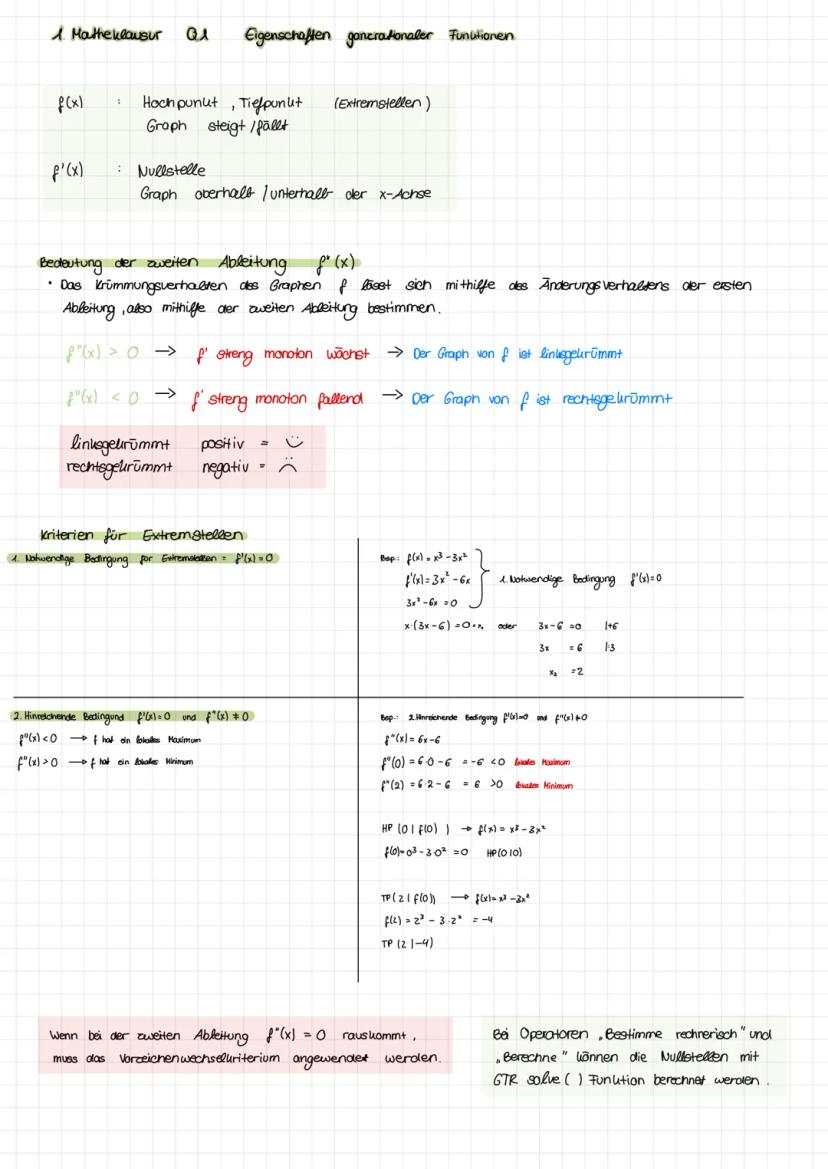 1. Matheklausur Q1 Eigenschaften ganzrationaler Funktionen
f(x) : Hochpunkt, Tiefpunkt (Extremstellen)
Graph steigt / fällt
f'(x) : Nullstelle
Graph oberhalb / unterhalb der x-Achse
Bedeutung der zweiten Ableitung f"(x)
• Das Krümmungsverhalten des Graphen f lässt sich mithilfe des Änderungsverhaltens der ersten
Ableitung, also mithilfe der zweiten Ableitung bestimmen.
f"(x) > 0 → f' streng monoton wächst → Der Graph von f ist linksgekrümmt
f"(x) < 0 → f' streng monoton fallend → Der Graph von f ist rechtsgekrümmt
linksgekrümmt positiv = ☺
rechtsgekrümmt negativ = ☹
Kriterien für Extremstellen
1. Notwendige Bedingung für Extremstellen = f'(x) = 0
Bsp.: f(x) = x³ - 3x²
f'(x) = 3x² - 6x
1. Notwendige Bedingung f'(x)=0
3x² - 6x = 0
x·(3x-6) = 0 = x₁ oder 3x-6 =0 |+6
3x = 6 |:3
x₂ = 2
2. Hinreichende Bedingund f'(x)=0 und f"(x) ≠ 0
f"(x) < 0 → f hat ein lokales Maximum
f"(x) > 0 → f hat ein lokales Minimum
Bsp.: 2. Hinreichende Bedingung f'(x)=0 und f"(x) ≠ 0
f"(x) = 6x-6
f"(0) = 6·0-6 = -6 <0 lokales Maximum
f"(2) = 6·2-6 = 6 >0 lokales Minimum
HP (0 | f(0)) → f(x) = x³ - 3x²
f(0)= 0³ - 3·0² = 0 HP(0|0)
TP( 2 | f(0)) → f(x)= x³ - 3x²
f(2) = 2³ - 3·2² = -4
TP (2 |-4)
Wenn bei der zweiten Ableitung f"(x) = 0 rauskommt,
muss das Vorzeichenwechselkriterium angewendet werden.
Bei Operatoren „Bestimme rechnerisch" und
„Berechne" können die Nullstellen mit
GTR solve ( ) Funktion berechnet werden.